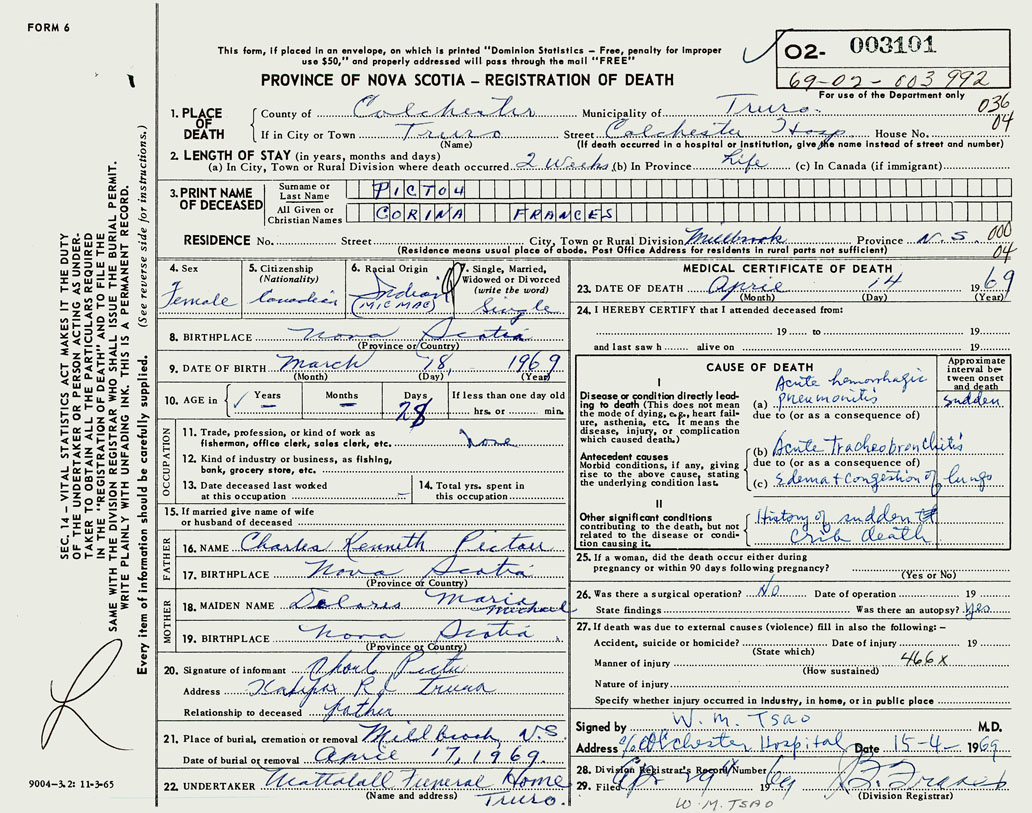 FORM 6
This form, if placed in an envelope, on which is printed "Dominion Statistics – Free, penalty for improper
use $50," and properly addressed will pass through the mail "FREE"
PROVINCE OF NOVA SCOTIA – REGISTRATION OF DEATH
O2- 003101
69-02-003992
For use of the Department only
036
04
1. PLACE OF DEATH
County of Colchester Municipality of Truro.
If in City or Town Truro Street Colchester Hosp House No.
(Name) (If death occurred in a hospital or institution, give the name instead of street and number)
2. LENGTH OF STAY (in years, months and days)
(a) In City, Town or Rural Division where death occurred 2 Weeks (b) In Province Life (c) In Canada (if immigrant)
3. PRINT NAME OF DECEASED
Surname or Last Name PICTOU
All Given or Christian Names CORINA FRANCES
RESIDENCE No. Street City, Town or Rural Division Millbrook Province N.S. 000
(Residence means usual place of abode. Post Office Address for residents in rural parts not sufficient) 04
4. Sex Female
5. Citizenship (Nationality) Canadian
6. Racial Origin Indian (MICMAC)
7. Single, Married, Widowed or Divorced (write the word) Single
8. BIRTHPLACE Nova Scotia
(Province or Country)
9. DATE OF BIRTH March 18, 1969
(Month) (Day) (Year)
10. AGE in Years – Months – Days 28 If less than one day old
hrs. or min.
OCCUPATION
11. Trade, profession, or kind of work as
fisherman, office clerk, sales clerk, etc. None
12. Kind of industry or business, as fishing,
bank, grocery store, etc.
13. Date deceased last worked
at this occupation –
14. Total yrs. spent in
this occupation
15. If married give name of wife
or husband of deceased
FATHER
16. NAME Charles Kenneth Pictou
17. BIRTHPLACE Nova Scotia
(Province or Country)
MOTHER
18. MAIDEN NAME Delores Marie Michael
19. BIRTHPLACE Nova Scotia
(Province or Country)
20. Signature of informant
Address Halifax Rd Truro
Relationship to deceased father
21. Place of burial, cremation or removal Millbrook, N.S.
Date of burial or removal April 17, 1969.
22. UNDERTAKER Mattatall Funeral Home
(Name and address) Truro.
MEDICAL CERTIFICATE OF DEATH
23. DATE OF DEATH April 14 1969
(Month) (Day) (Year)
24. I HEREBY CERTIFY that I attended deceased from:
19 to 19
and last saw h alive on 19
CAUSE OF DEATH
Approximate interval between onset and death
I
Disease or condition directly leading to death (This does not mean the mode of dying, e.g., heart failure, asthenia, etc. It means the disease, injury, or complication which caused death.)
(a) Acute hemorrhagic pneumonitis sudden
due to (or as a consequence of)
Antecedent causes
Morbid conditions, if any, giving rise to the above cause, stating the underlying condition last.
(b) Acute Tracheobronchitis
due to (or as a consequence of)
(c) Edema + congestion of lungs
II
Other significant conditions
contributing to the death, but not related to the disease or condition causing it.
History of sudden
crib death
25. If a woman, did the death occur either during
pregnancy or within 90 days following pregnancy?
(Yes or No)
26. Was there a surgical operation? No Date of operation 19
State findings Was there an autopsy? yes
27. If death was due to external causes (violence) fill in also the following: –
Accident, suicide or homicide? Date of injury 19
(State which)
Manner of injury 466X
(How sustained)
Nature of injury
Specify whether injury occurred in Industry, in home, or in public place
Signed by W. M. Tsao M.D.
Address c/o Colchester Hospital Date 15-4- 1969
28. Division Registrar's Record Number
29. Filed 19 69
(Division Registrar)
W. M. TSAO
SEC. 14 – VITAL STATISTICS ACT MAKES IT THE DUTY
OF THE UNDERTAKER OR PERSON ACTING AS UNDER-
TAKER TO OBTAIN ALL THE PARTICULARS REQUIRED
IN THE "REGISTRATION OF DEATH" AND TO FILE THE
SAME WITH THE DIVISION REGISTRAR WHO SHALL ISSUE THE BURIAL PERMIT.
WRITE PLAINLY WITH UNFADING INK. THIS IS A PERMANENT RECORD.
Every item of information should be carefully supplied. (See reverse side for instructions.)
9004-3.2: 11-3-65